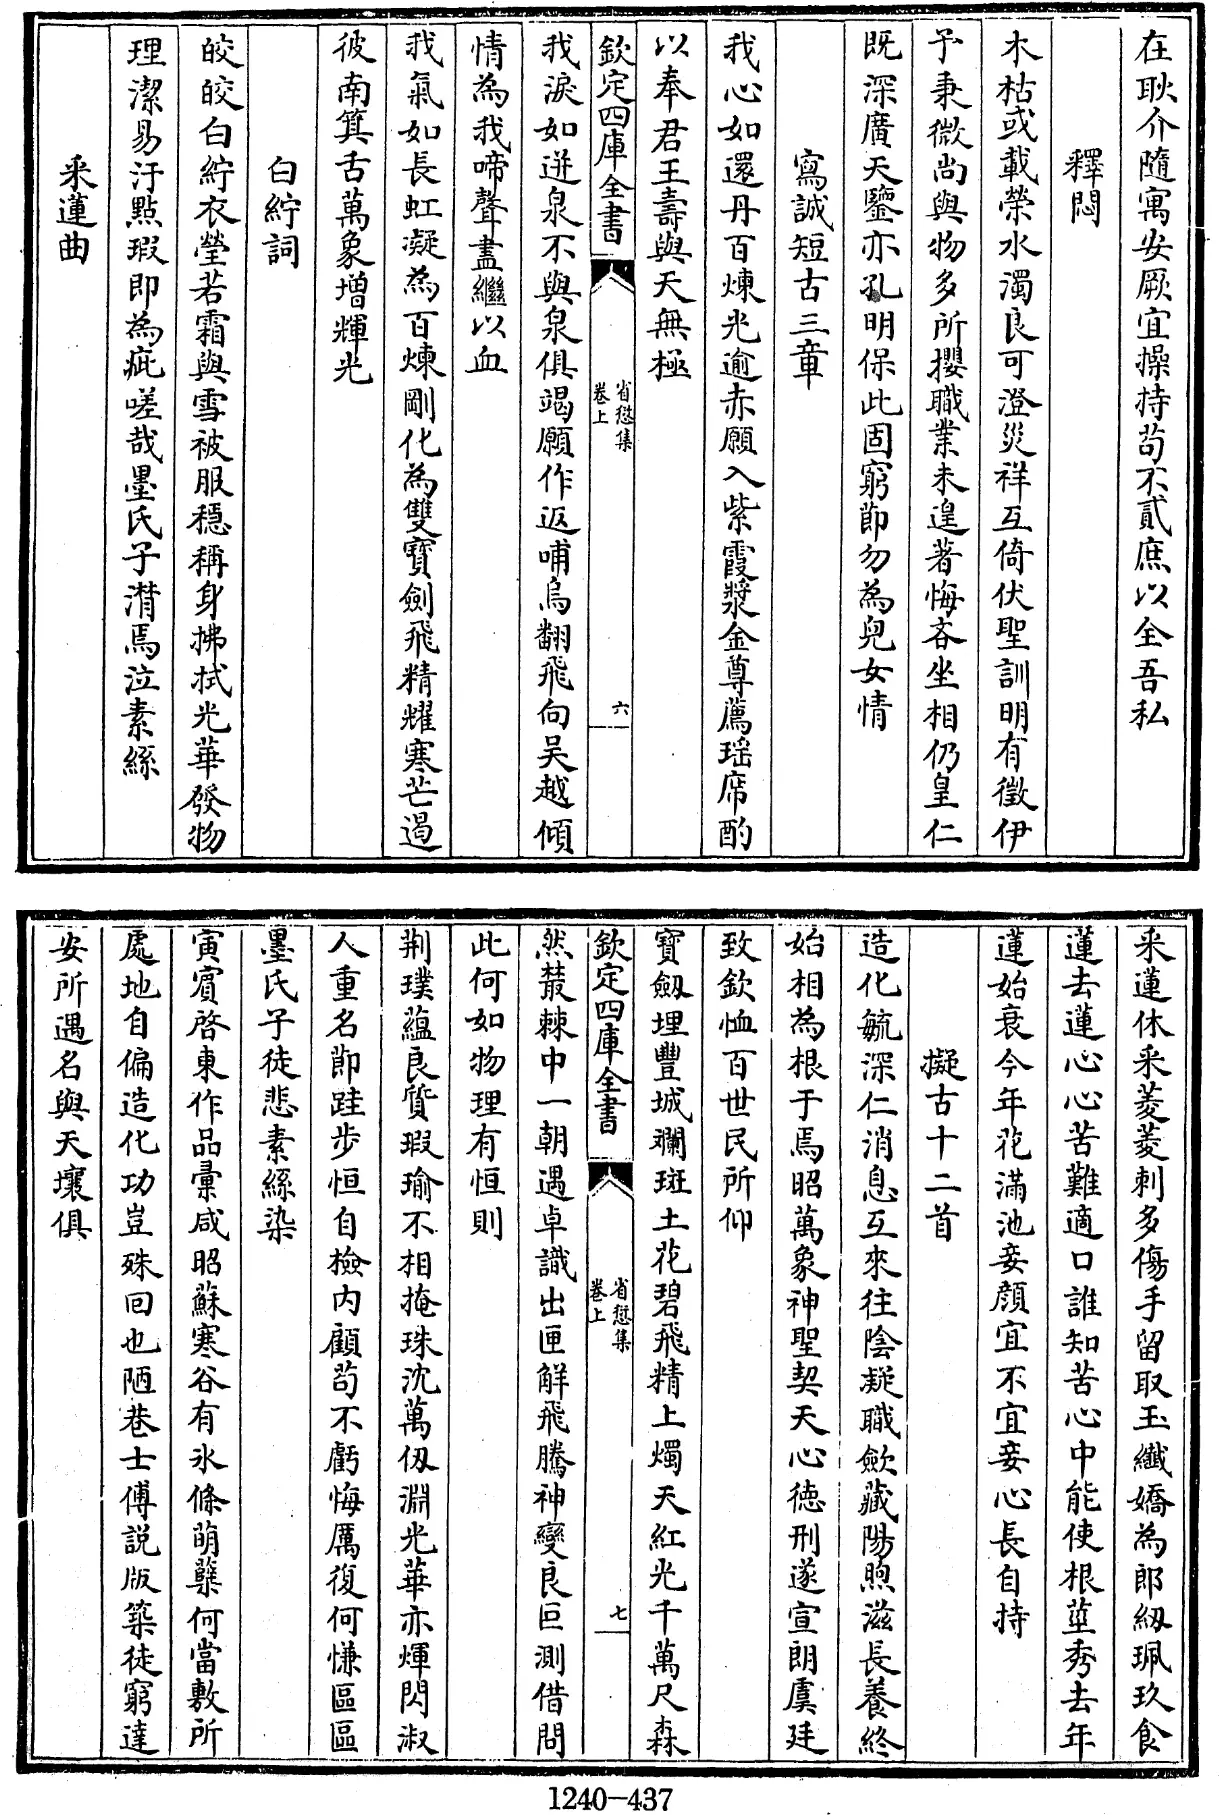 在耿介隨寓安厥宜操持苟不貳庶以全吾私
釋悶
木枯或載榮水濁良可澄災祥互倚伏聖訓明有徵伊
予秉微尚與物多所攖職業未遑著悔吝坐相仍皇仁
既深廣天鑒亦孔明保此固窮節勿為兒女情
寫誠短古三章
我心如還丹百煉光逾赤願入紫霞漿金尊薦瑶席酌
以奉君王壽與天無極
欽定四庫全書
省愆集
卷上
六
我淚如迸泉不與泉俱竭願作返哺烏翻飛向吴越傾
情為我啼聲盡繼以血
我氣如長虹凝為百煉剛化為雙寳劍飛精耀寒芒遏
彼南箕舌萬象增輝光
白紵詞
皎皎白紵衣瑩若霜與雪被服穩稱身拂拭光華發物
理潔易汙點瑕即為疵嗟哉墨氏子潸焉泣素絲
采蓮曲
采蓮休采菱菱刺多傷手留取玉纖嬌為郎紉珮玖食
蓮去蓮心心苦難適口誰知苦心中能使根莖秀去年
蓮始衰今年花滿池妾顔宜不宜妾心長自持
擬古十二首
造化毓深仁消息互來往陰凝職歛藏陽煦滋長養終
始相為根于焉昭萬象神聖契天心徳刑遂宣朗虞廷
致欽恤百世民所仰
寳劔埋豐城斕斑土花碧飛精上燭天紅光千萬尺森
欽定四庫全書
省愆集
卷上
七
然藂棘中一朝遇卓識出匣解飛騰神變良叵測借問
此何如物理有恒則
荆璞藴良質瑕瑜不相掩珠沈萬仭淵光華亦煇閃淑
人重名節跬步恒自檢内顧苟不虧悔厲復何慊區區
墨氏子徒悲素絲染
寅賓啓東作品彚咸昭蘇寒谷有氷條萌蘖何當敷所
處地自偏造化功豈殊回也陋巷士傅説版築徒窮達
安所遇名與天壤俱
1240-437